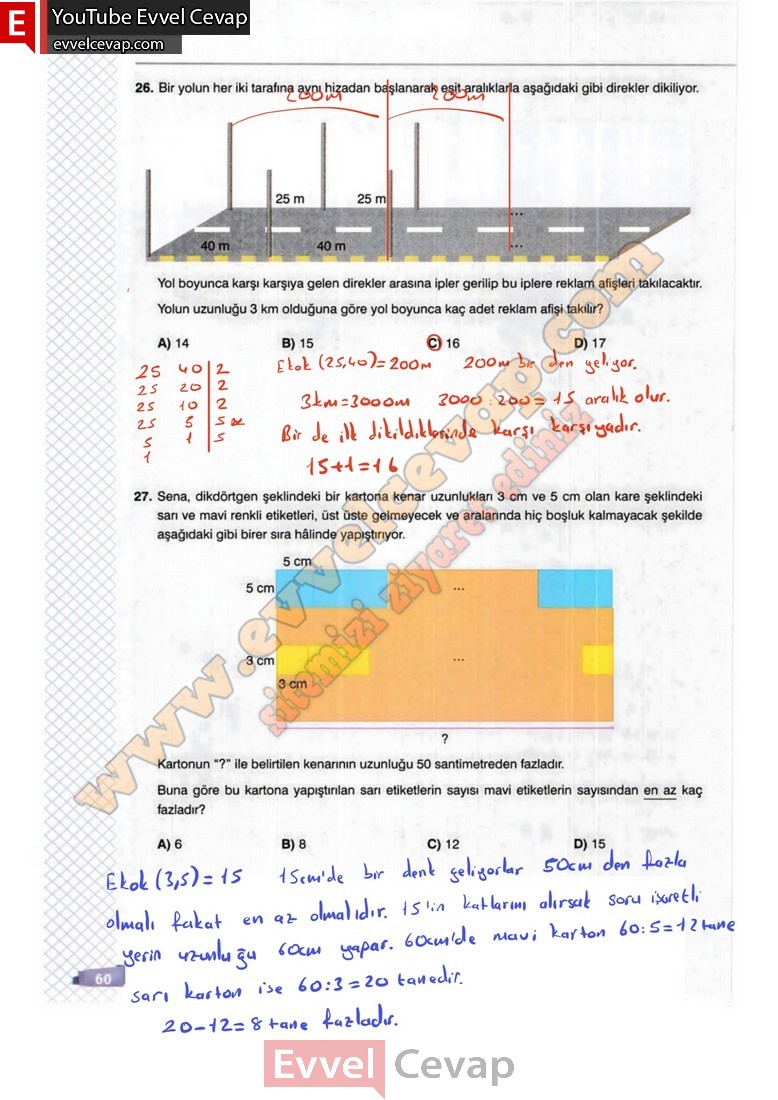 E YouTube Evvel Cevap
evvelcevap.com
26. Bir yolun her iki tarafına aynı hizadan başlanarak eşit aralıklarla aşağıdaki gibi direkler dikiliyor.
200m 200m
25 m 25 m
...
40 m 40 m ...
Yol boyunca karşı karşıya gelen direkler arasına ipler gerilip bu iplere reklam afişleri takılacaktır.
Yolun uzunluğu 3 km olduğuna göre yol boyunca kaç adet reklam afişi takılır?
A) 14 B) 15 C) 16 D) 17
25 40 2 Ekok (25,40)=200m 200m bir den geliyor.
25 20 2
25 10 2 3km=3000m 3000:200=15 aralık olur.
25 5 5
5 1 5 Bir de ilk dikildiklerinde karşı karşıyadır.
1
15+1=16
27. Sena, dikdörtgen şeklindeki bir kartona kenar uzunlukları 3 cm ve 5 cm olan kare şeklindeki
sarı ve mavi renkli etiketleri, üst üste gelmeyecek ve aralarında hiç boşluk kalmayacak şekilde
aşağıdaki gibi birer sıra hâlinde yapıştırıyor.
5 cm
5 cm ...
3 cm ...
3 cm
?
Kartonun “?” ile belirtilen kenarının uzunluğu 50 santimetreden fazladır.
Buna göre bu kartona yapıştırılan sarı etiketlerin sayısı mavi etiketlerin sayısından en az kaç
fazladır?
A) 6 B) 8 C) 12 D) 15
Ekok (3,5)=15 15cm'de bir denk geliyorlar 50cm den fazla
olmalı fakat en az olmalıdır. 15'in katlarını alırsak soru işaretli
yerin uzunluğu 60cm yapar. 60cm'de mavi karton 60:5=12 tane
sarı karton ise 60:3=20 tanedir.
20-12=8 tane fazladır.
60
www.evvelcevap.com
sitemizi ziyaret ediniz
Evvel Cevap